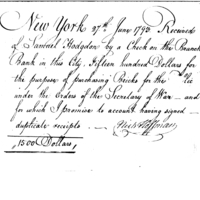 New York 27th June 1795 Received
of Samuel Hodgdon by a Check on the Branch
Bank in this City, Fifteen hundred Dollars for
the purpose of purchasing Bricks for the
under the Orders of the Secretary of War — and
for which I promise to account having signed
duplicate receipts
1500 Dollars